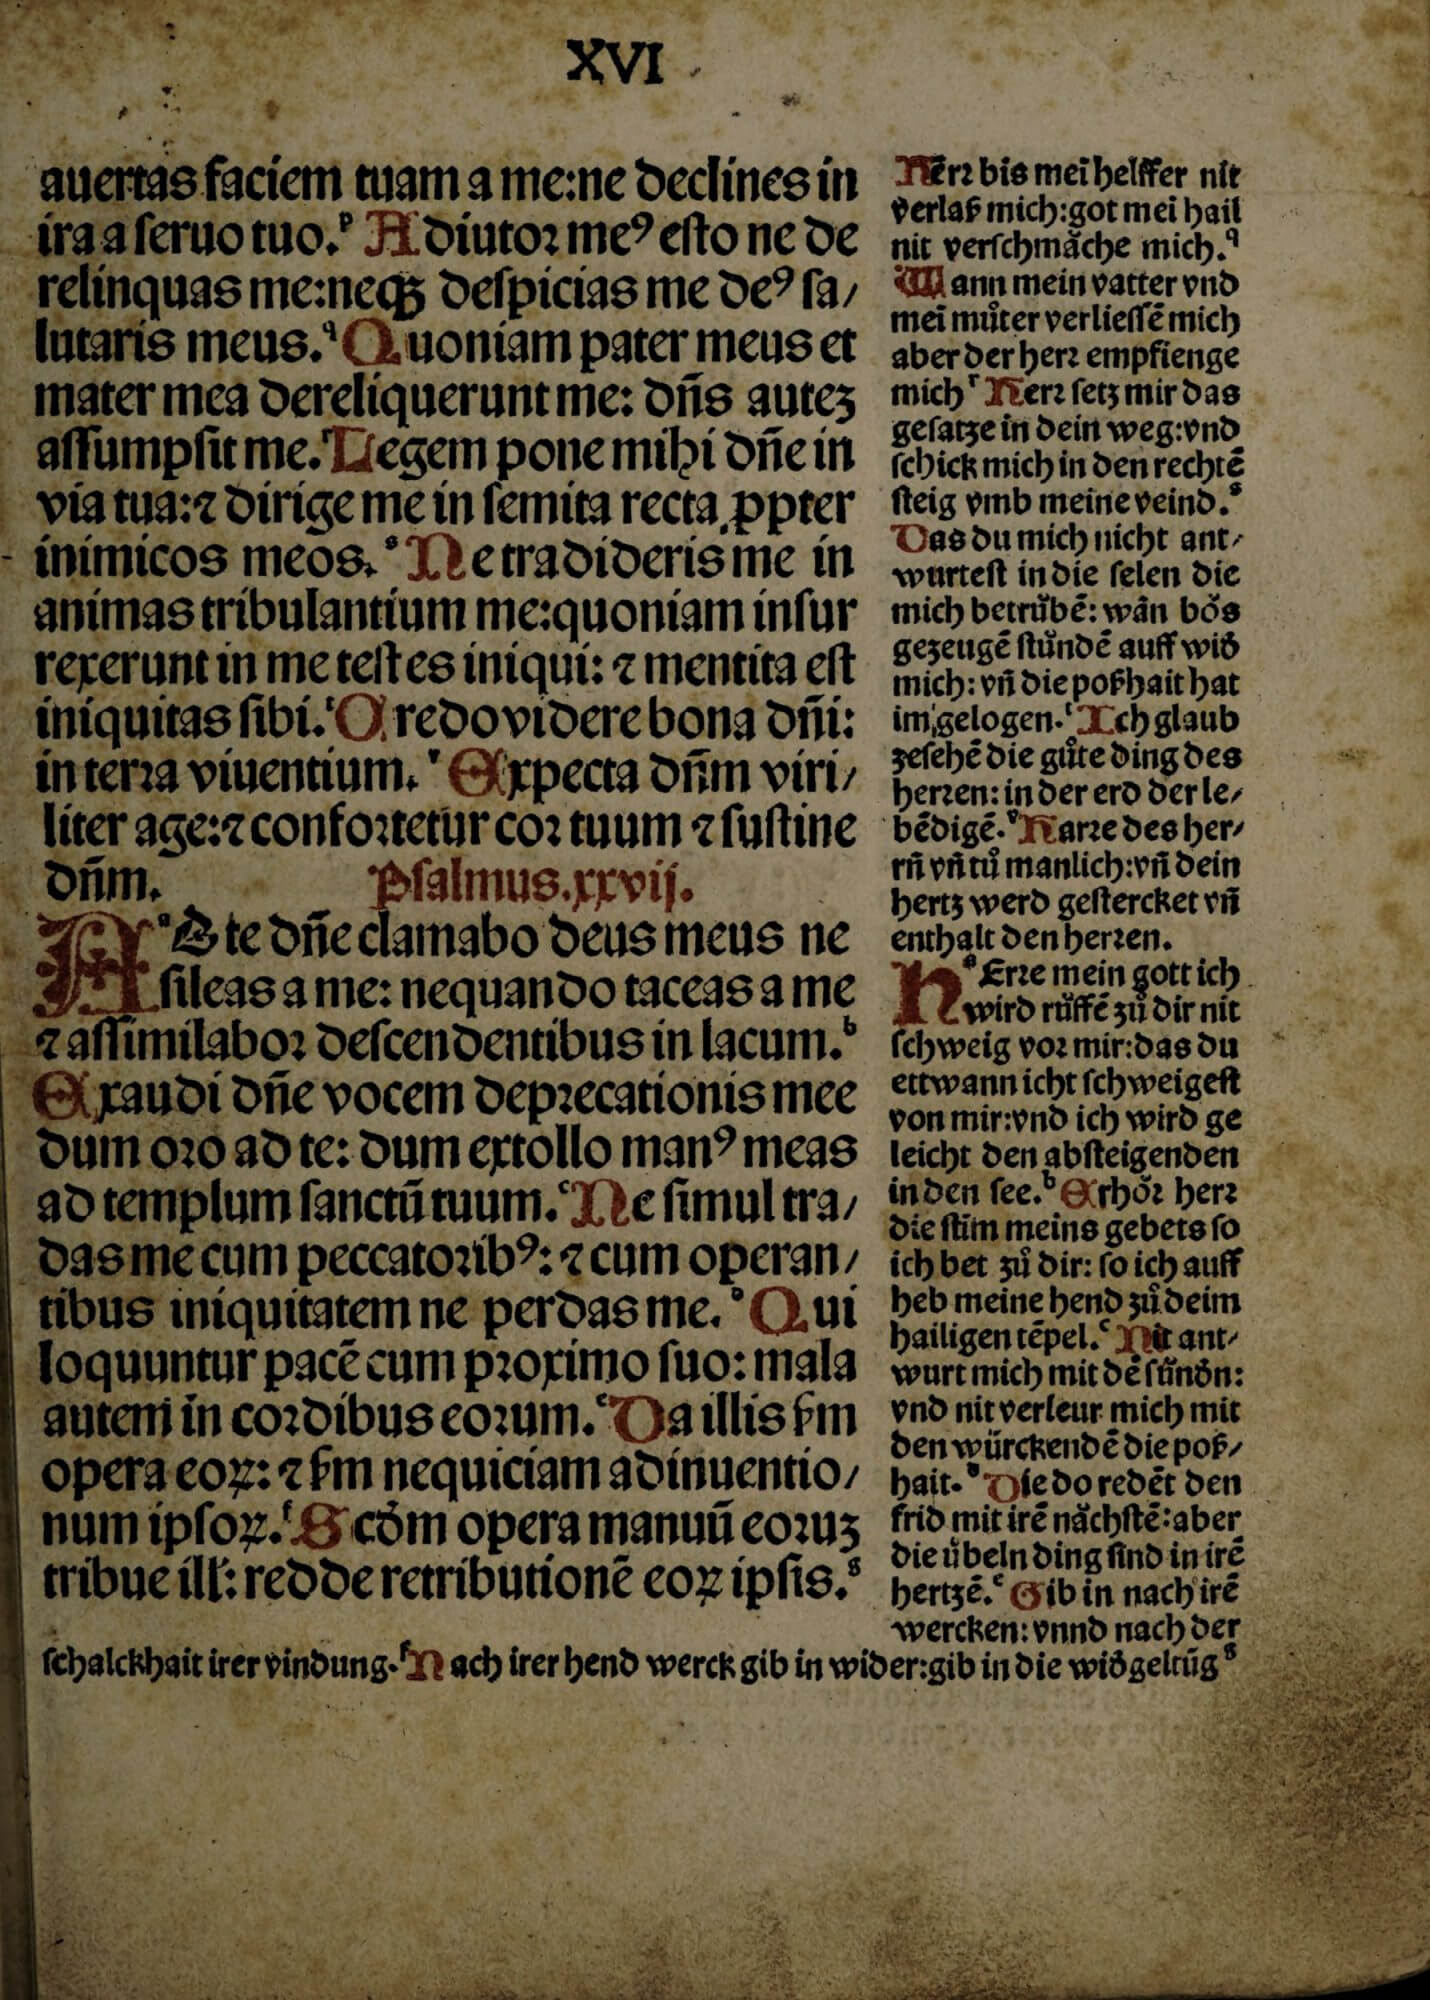 XVI
auertas faciem tuam a me:ne declines in
ira a seruo tuo.ᵖ Adiutoꝛ meꝰ esto ne de
relinquas me:neqꝫ despicias me deꝰ sa/
lutaris meus.ᑫ Quoniam pater meus et
mater mea dereliquerunt me: dn̄s auteʒ
assumpsit me.ʳ Legem pone mihi dn̄e in
via tua:⁊ dirige me in semita recta ꝓpter
inimicos meos.ˢ Ne tradideris me in
animas tribulantium me:quoniam insur
rexerunt in me testes iniqui: ⁊ mentita est
iniquitas sibi.ᵗ Credo videre bona dn̄i:
in terꝛa viuentium.ᵛ Expecta dn̄m viri/
liter age:⁊ confoꝛtetur coꝛ tuum ⁊ sustine
dn̄m. Psalmus.xxvij.
ᵃAD te dn̄e clamabo deus meus ne
sileas a me: nequando taceas a me
⁊ assimilaboꝛ descendentibus in lacum.ᵇ
Exaudi dn̄e vocem depꝛecationis mee
dum oꝛo ad te: dum extollo manꝰ meas
ad templum sanctū tuum.ᶜ Ne simul tra/
das me cum peccatoꝛibꝰ: ⁊ cum operan/
tibus iniquitatem ne perdas me.ᵈ Qui
loquuntur pacē cum pꝛoximo suo: mala
autem in coꝛdibus eoꝛum.ᵉ Da illis ẜm
opera eoꝝ: ⁊ ẜm nequiciam adinuentio/
num ipsoꝝ.ᶠ Scd̄m opera manuū eoꝛuʒ
tribue ill̓: redde retributionē eoꝝ ipsis.ᵍ
Hērꝛ bis mei̅ helffer nit
verlaß mich:got mei hail
nit verschmaͤche mich.ᑫ
Wann mein vatter vnd
mei̅ muͦter verliessē mich
aber der herꝛ empfienge
mich ʳ Herꝛ setʒ mir das
gesatʒe in dein weg:vnd
schick mich in den rechtē
steig vmb meine veind.ˢ
Das du mich nicht ant/
wurtest in die selen die
mich betruͤbē: wān boͤs
geʒeugē stuͤndē auff wid̓
mich: vn̄ die poßhait hat
im gelogen.ᵗ Ich glaub
ʒesehē die guͦte ding des
herꝛen: in der erd der le/
bēdigē.ᵛ Harꝛe des her/
rn̄ vn̄ tuͦ manlich:vn̄ dein
hertʒ werd gestercket vn̄
enthalt den herꝛen.
ᵃHErꝛe mein gott ich
wird ruͤffē ʒuͦ dir nit
schweig voꝛ mir:das du
ettwann icht schweigest
von mir:vnd ich wird ge
leicht den absteigenden
in den see.ᵇ Erhoͤꝛ herꝛ
die stim̄ meins gebets so
ich bet ʒuͦ dir: so ich auff
heb meine hend ʒuͦ deim
hailigen tēpel.ᶜ Nit ant/
wurt mich mit dē suͤndn̄:
vnd nit verleur mich mit
den wuͤrckendē die poß/
hait.ᵈ Die do redēt den
frid mit irē naͤchstē: aber
die uͤbeln ding sind in irē
hertʒē.ᵉ Gib in nach irē
wercken: vnnd nach der
schalckhait irer vindung.ᶠ Nach irer hend werck gib in wider:gib in die wid̓geltūg ᵍ